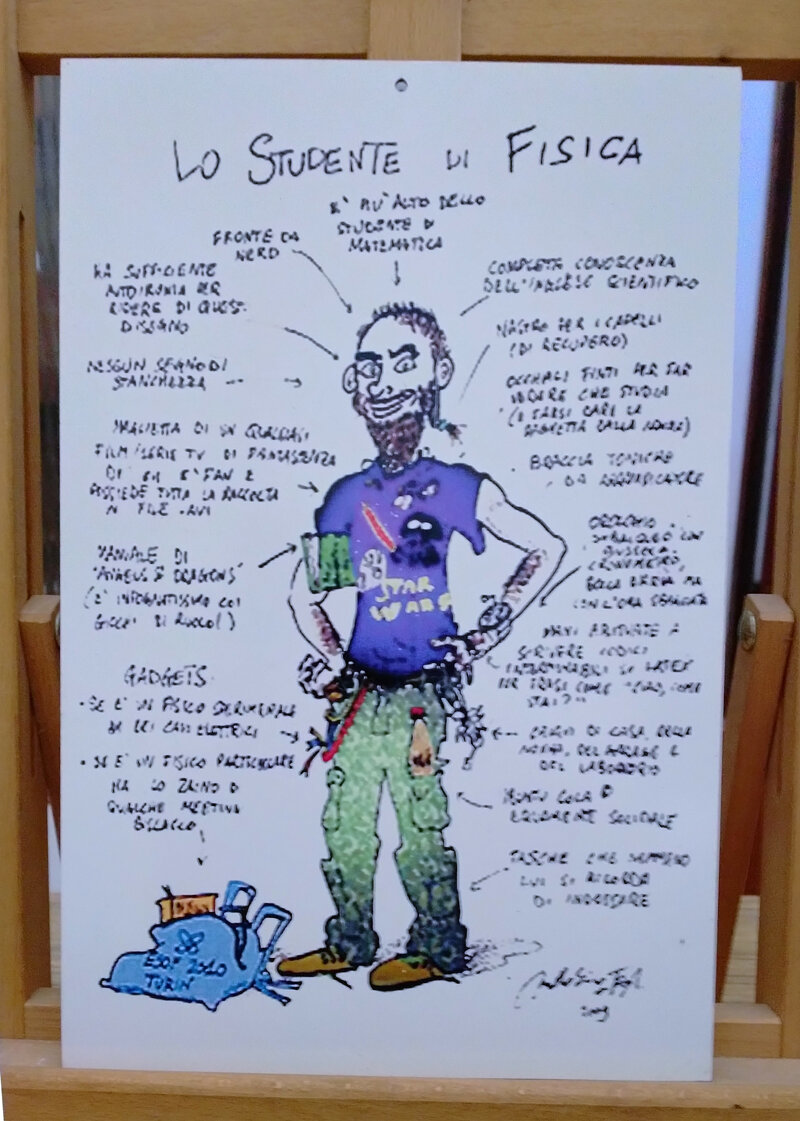 LO STUDENTE DI FISICA
E' PIU' ALTO DELLO
STUDENTE DI
MATEMATICA
FRONTE DA
NERD
HA SUFFICIENTE
AUTOIRONIA PER
RIDERE DI QUESTO
DISEGNO
NESSUN SEGNO DI
STANCHEZZA
MAGLIETTA DI UN QUALSIASI
FILM/SERIE TV DI FANTASCIENZA
DI CUI E' FAN E
POSSIEDE TUTTA LA RACCOLTA
IN FILE .AVI
MANUALE DI
"DRAGONS"
(E' INFOGNATISSIMO COI
GIOCHI DI RUOLO!)
GADGETS:
• SE E' UN FISICO SPERIMENTALE
CAVI ELETTRICI
• SE E' UN FISICO PARTICELLARE
HA LO ZAINO DI
QUALCHE MEETING
BISLACCO
COMPLETA CONOSCENZA
DELL'INGLESE SCIENTIFICO
NASTRO PER I CAPELLI
(DI RECUPERO)
OCCHIALI FINTI PER FAR
VEDERE CHE STUDIA
(E FARSI DARE LA
PAGHETTA DALLA NONNA)
BRACCIA TONICHE
DA ARRAMPICATORE
OROLOGIO
CON
BUSSOLA,
CRONOMETRO,
MA
CON L'ORA SBAGLIATA
MANI ABITUATE A
SCRIVERE CODICI
INTERMINABILI DI LATEX
PER FRASI COME "CIAO, COME
STAI?"
CHIAVI DI CASA, DELLA
NONNA, DEL GARAGE E
DEL LABORATORIO
COLA
EQUAMENTE SOLIDALE
TASCHE CHE NEMMENO
LUI SI RICORDA
DI INDOSSARE
STAR
WARS
2010
TURIN
2009